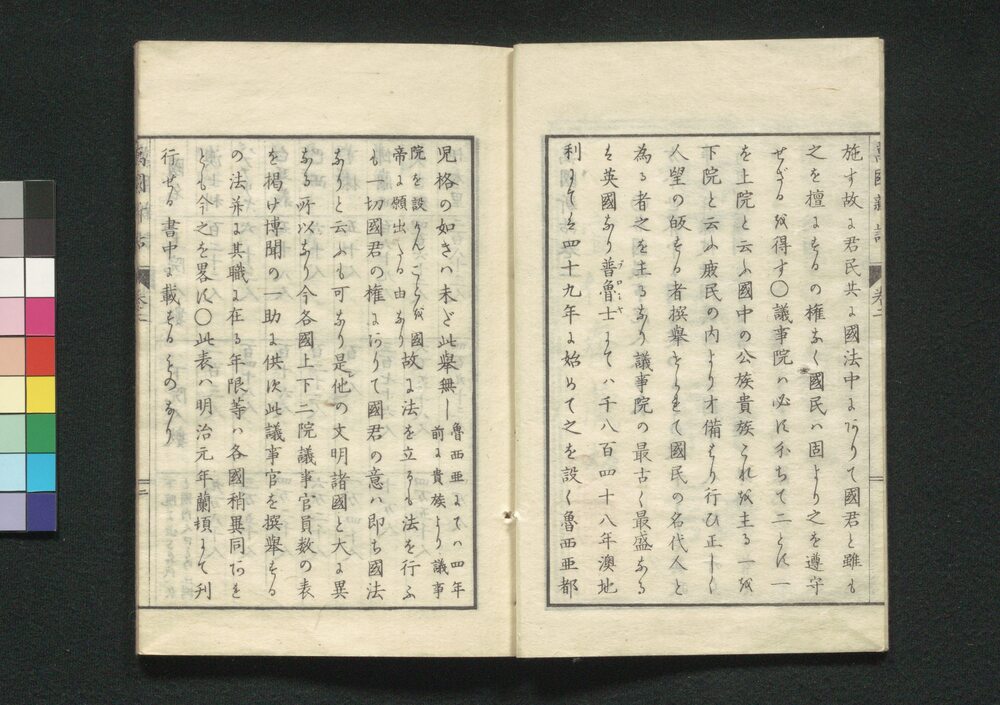 萬國新話 卷二
施す故に君民共に國法中にありて國君と雖も
之を擅にするの權なく國民ハ固より之を遵守
せざるを得す〇議事院ハ必ス分ちて二とす一
を上院と云ふ國中の公族貴族これを主る一を
下院と云ふ庶民の内より才備はり行ひ正しく
人望の皈する者撰擧せられて國民の名代人と
為る者之を主るなり議事院の最古く最盛なる
は英國なり普魯士にてハ千八百四十八年澳地
利にては四十九年に始めて之を設く魯西亜都
児格の如きハ未だ此擧無し魯西亜にてハ四年
前に貴族より議事
院を設けんことを國
帝に願出たる由なり故に法を立るも法を行ふ
も一切國君の權にありて國君の意ハ即ち國法
なりと云ふも可なり是他の文明諸國と大に異
なる所以なり今各國上下二院議事官員數の表
を掲け博聞の一助に供ス此議事官を撰擧する
の法并に其職に在る年限等ハ各國稍異同あれ
とも今之を畧ス〇此表ハ明治元年蘭頓にて刊
行せる書中に載するものなり
萬國新話 卷二 二